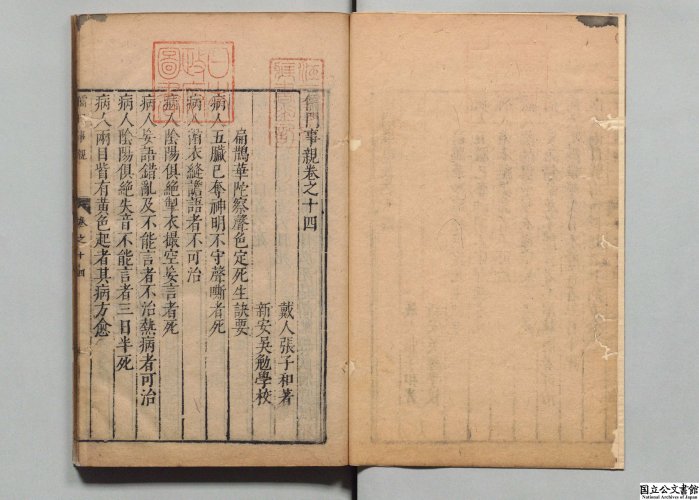 儒門事親卷之十四
戴人張子和著
新安吳勉學校
扁鵲華陀察聲色定死生訣要
病人五臟已奪神明不守聲嘶者死
病人循衣縫譫語者不可治
病人陰陽俱絕掣衣撮空妄言者死
病人妄語錯亂及不能言者不治熱病者可治
病人陰陽俱絕失音不能言者三日半死
病人兩目眥有黃色起者其病方愈
儒門事親
卷之十四
国立公文書館
National Archives of Japan